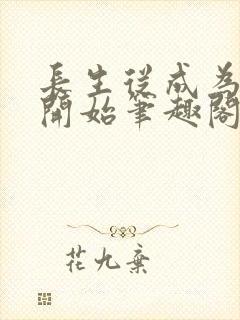 長生從成為
開始筆趣閣
花九棄